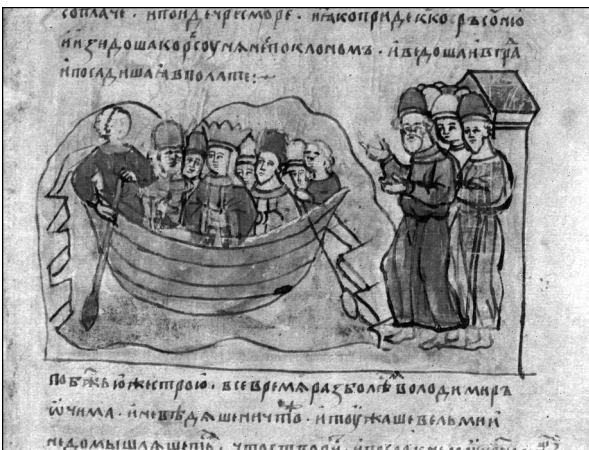 соплаче · ипоиде чресморе · иꙗкоприде ккоръсоню
иизидошакорсоунѧнеспоклономъ · иведошаивгра
ипосадиша ивполате:~
побж҃ьюжестрою · всевремѧразболѣ володимиръ
ѡчима · иневѣдѧшеничто · итоужашевельми и
недомышлѧшеть · чтостворї · ипосла